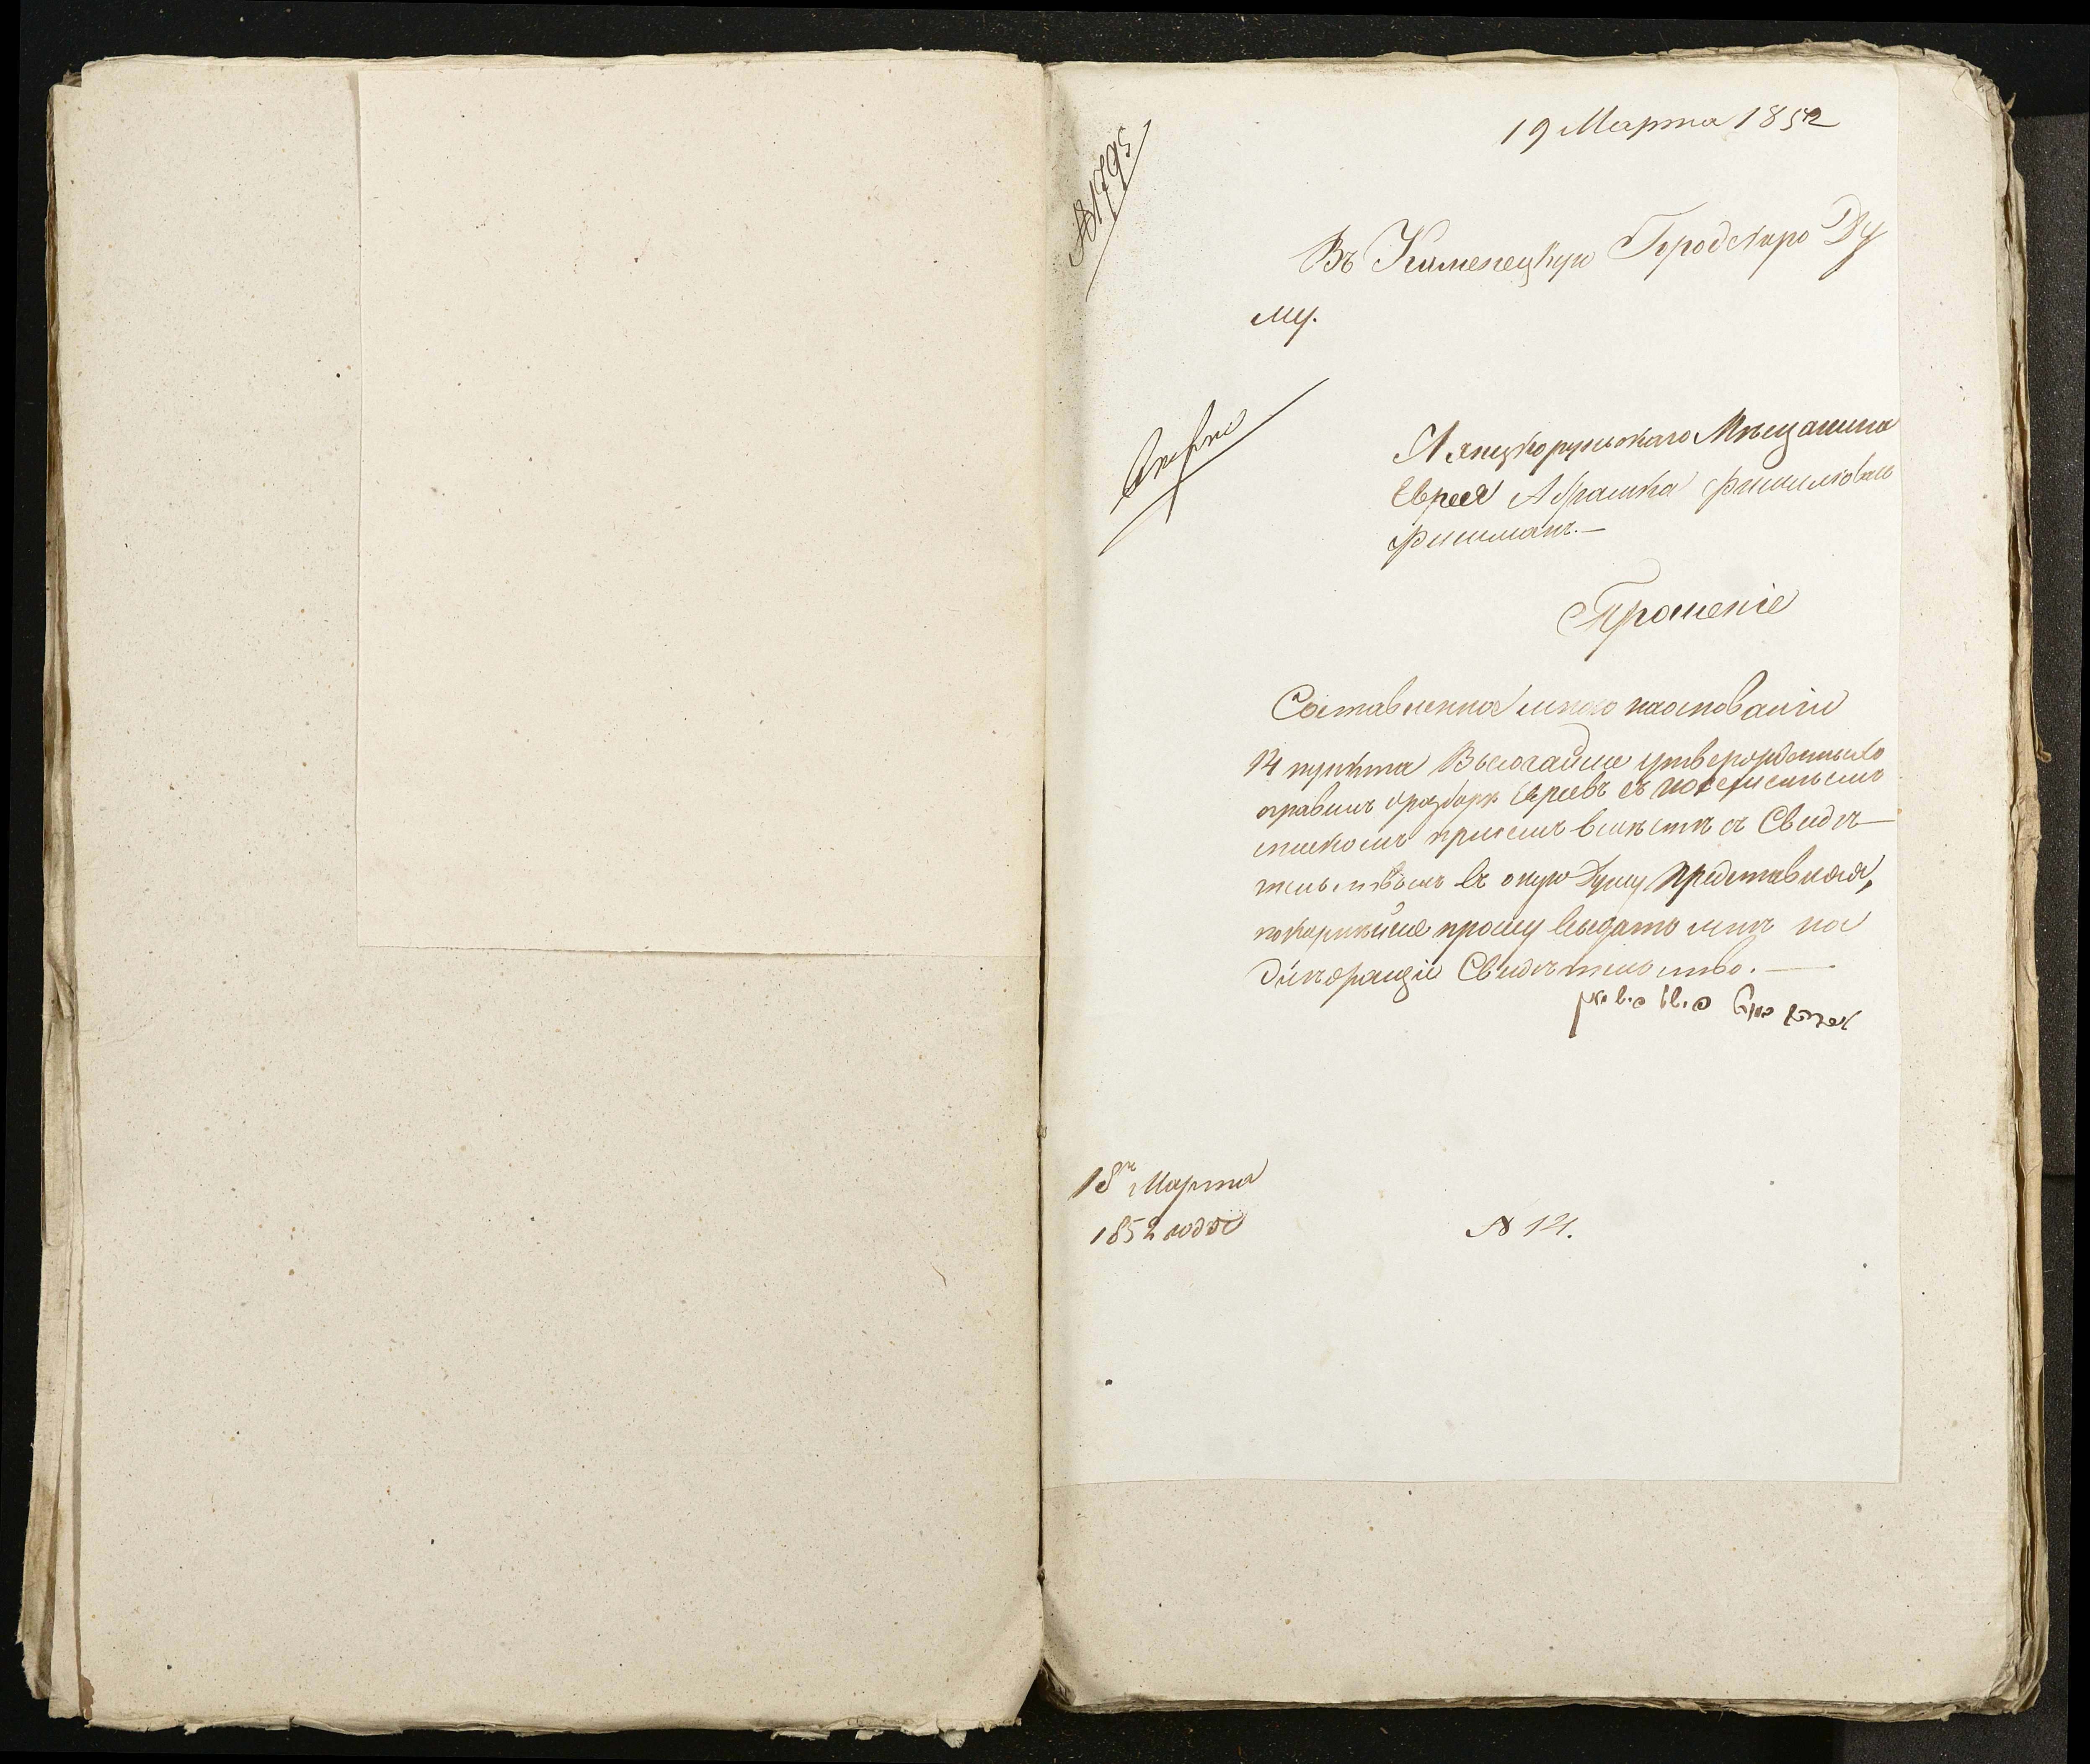 19 Марта 1852
№ 1795
Въ Каменецкую Городскую Ду
му.
Лянцкорунского Мѣщанина
Еврея Абрамка Фишиловаго
Фишманъ.—
Прошеніе
Составленное мною наосновании
14 пункта Высочайше утвержденныхъ
правилъ оразборѣ Евреевъ съ посемейнымъ
спискомъ при семъ вмѣстѣ съ Свидѣ—
тельствомъ въ оную Думу представляя,
покорнѣйше прошу выдать мнѣ на
Свидѣтельство.—
18 Марта
1852 года
№ 14.